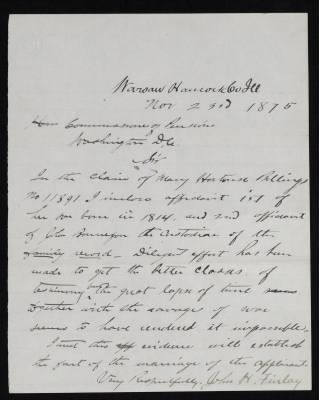 Warsaw Hancock Co Ill
Nov 23rd 1875
Hon Commissioner of Pensions
Washington D.C.
Sir
In the claim of Mary Hortense Billings
No 11891 I inclose affidavit 1st of
born in 1814, and 2nd affidavit
of the custodian of the
family record - Diligent effort has been
made to get the latter class of
testimony the great lapse of time
with the ravages of war
seems to have rendered it impossible.
I trust this evidence will establish
the fact of the marriage of the applicant.
Very Respectfully, John H. Finlay